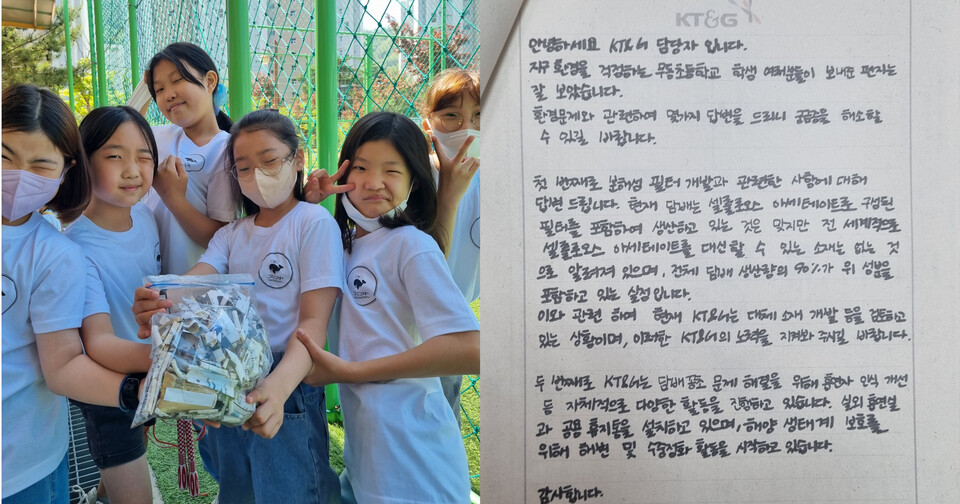 KT&G
안녕하세요 KT&G 담당자 입니다.
지구 환경을 걱정하는 무등초등학교 학생 여러분들이 보내준 편지는
잘 보았습니다.
환경문제와 관련하여 몇가지 답변을 드리니 궁금증을 해소할
수 있길 바랍니다.
첫 번째로 분해성 필터 개발과 관련한 사항에 대해
답변 드립니다. 현재 담배는 셀룰로오스 아세테이트로 구성된
필터를 포함하여 생산하고 있는 것은 맞지만 전 세계적으로
셀룰로오스 아세테이트를 대신할 수 있는 소재는 없는 것
으로 알려져 있으며, 전체 담배 생산량의 90%가 위 성분을
포함하고 있는 실정입니다.
이와 관련 하여 현재 KT&G는 대체 소재 개발 등을 검토하고
있는 상황이며, 이러한 KT&G의 노력을 지켜봐 주시길 바랍니다.
두 번째로 KT&G는 담배꽁초 문제 해결을 위해 흡연자 인식 개선
등 자체적으로 다양한 활동을 진행하고 있습니다. 실외 흡연실
과 공용 휴지통을 설치하고 있으며, 해양 생태계 보호를
위해 해변 및 수중정화 활동을 시작하고 있습니다.
감사합니다.